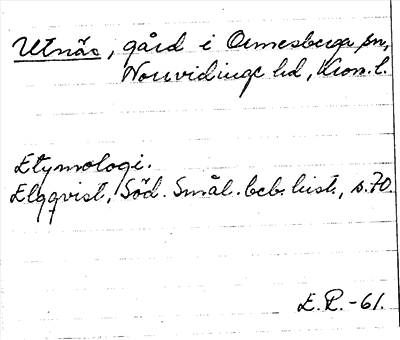 Utnäs, gård i Ormesberga sn,
Norrvidinge hd, Kron. l.
Etymologi.
Elgqvist, Söd. Smål. beb. hist., s. 70.
E. P. -61.